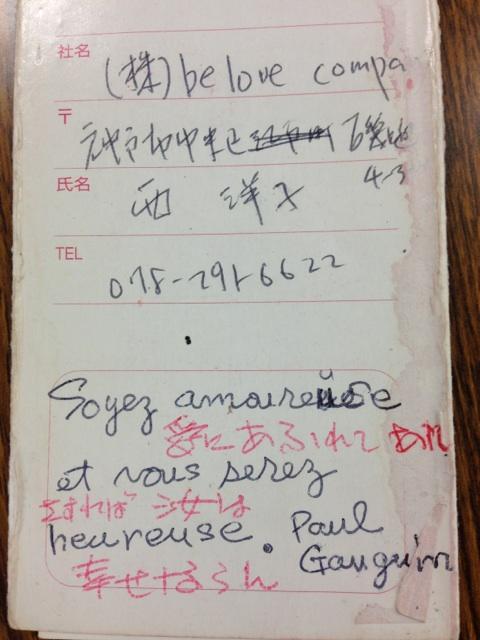 社名
(株)be love compa
〒
神戸市中央区
4-3
氏名
西 洋子
TEL
078-291-6622
Soyez amoureuse
愛にあふれて あれ
et vous serez
さすれば 汝は
heureuse. Paul
Gauguin
幸せならん